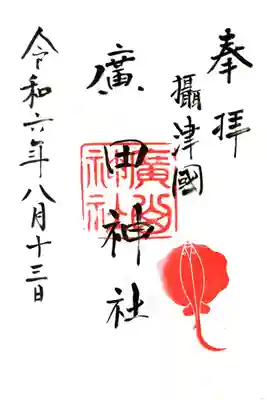 奉拝
攝津國
廣田神社
廣田神社
令和六年八月十三日